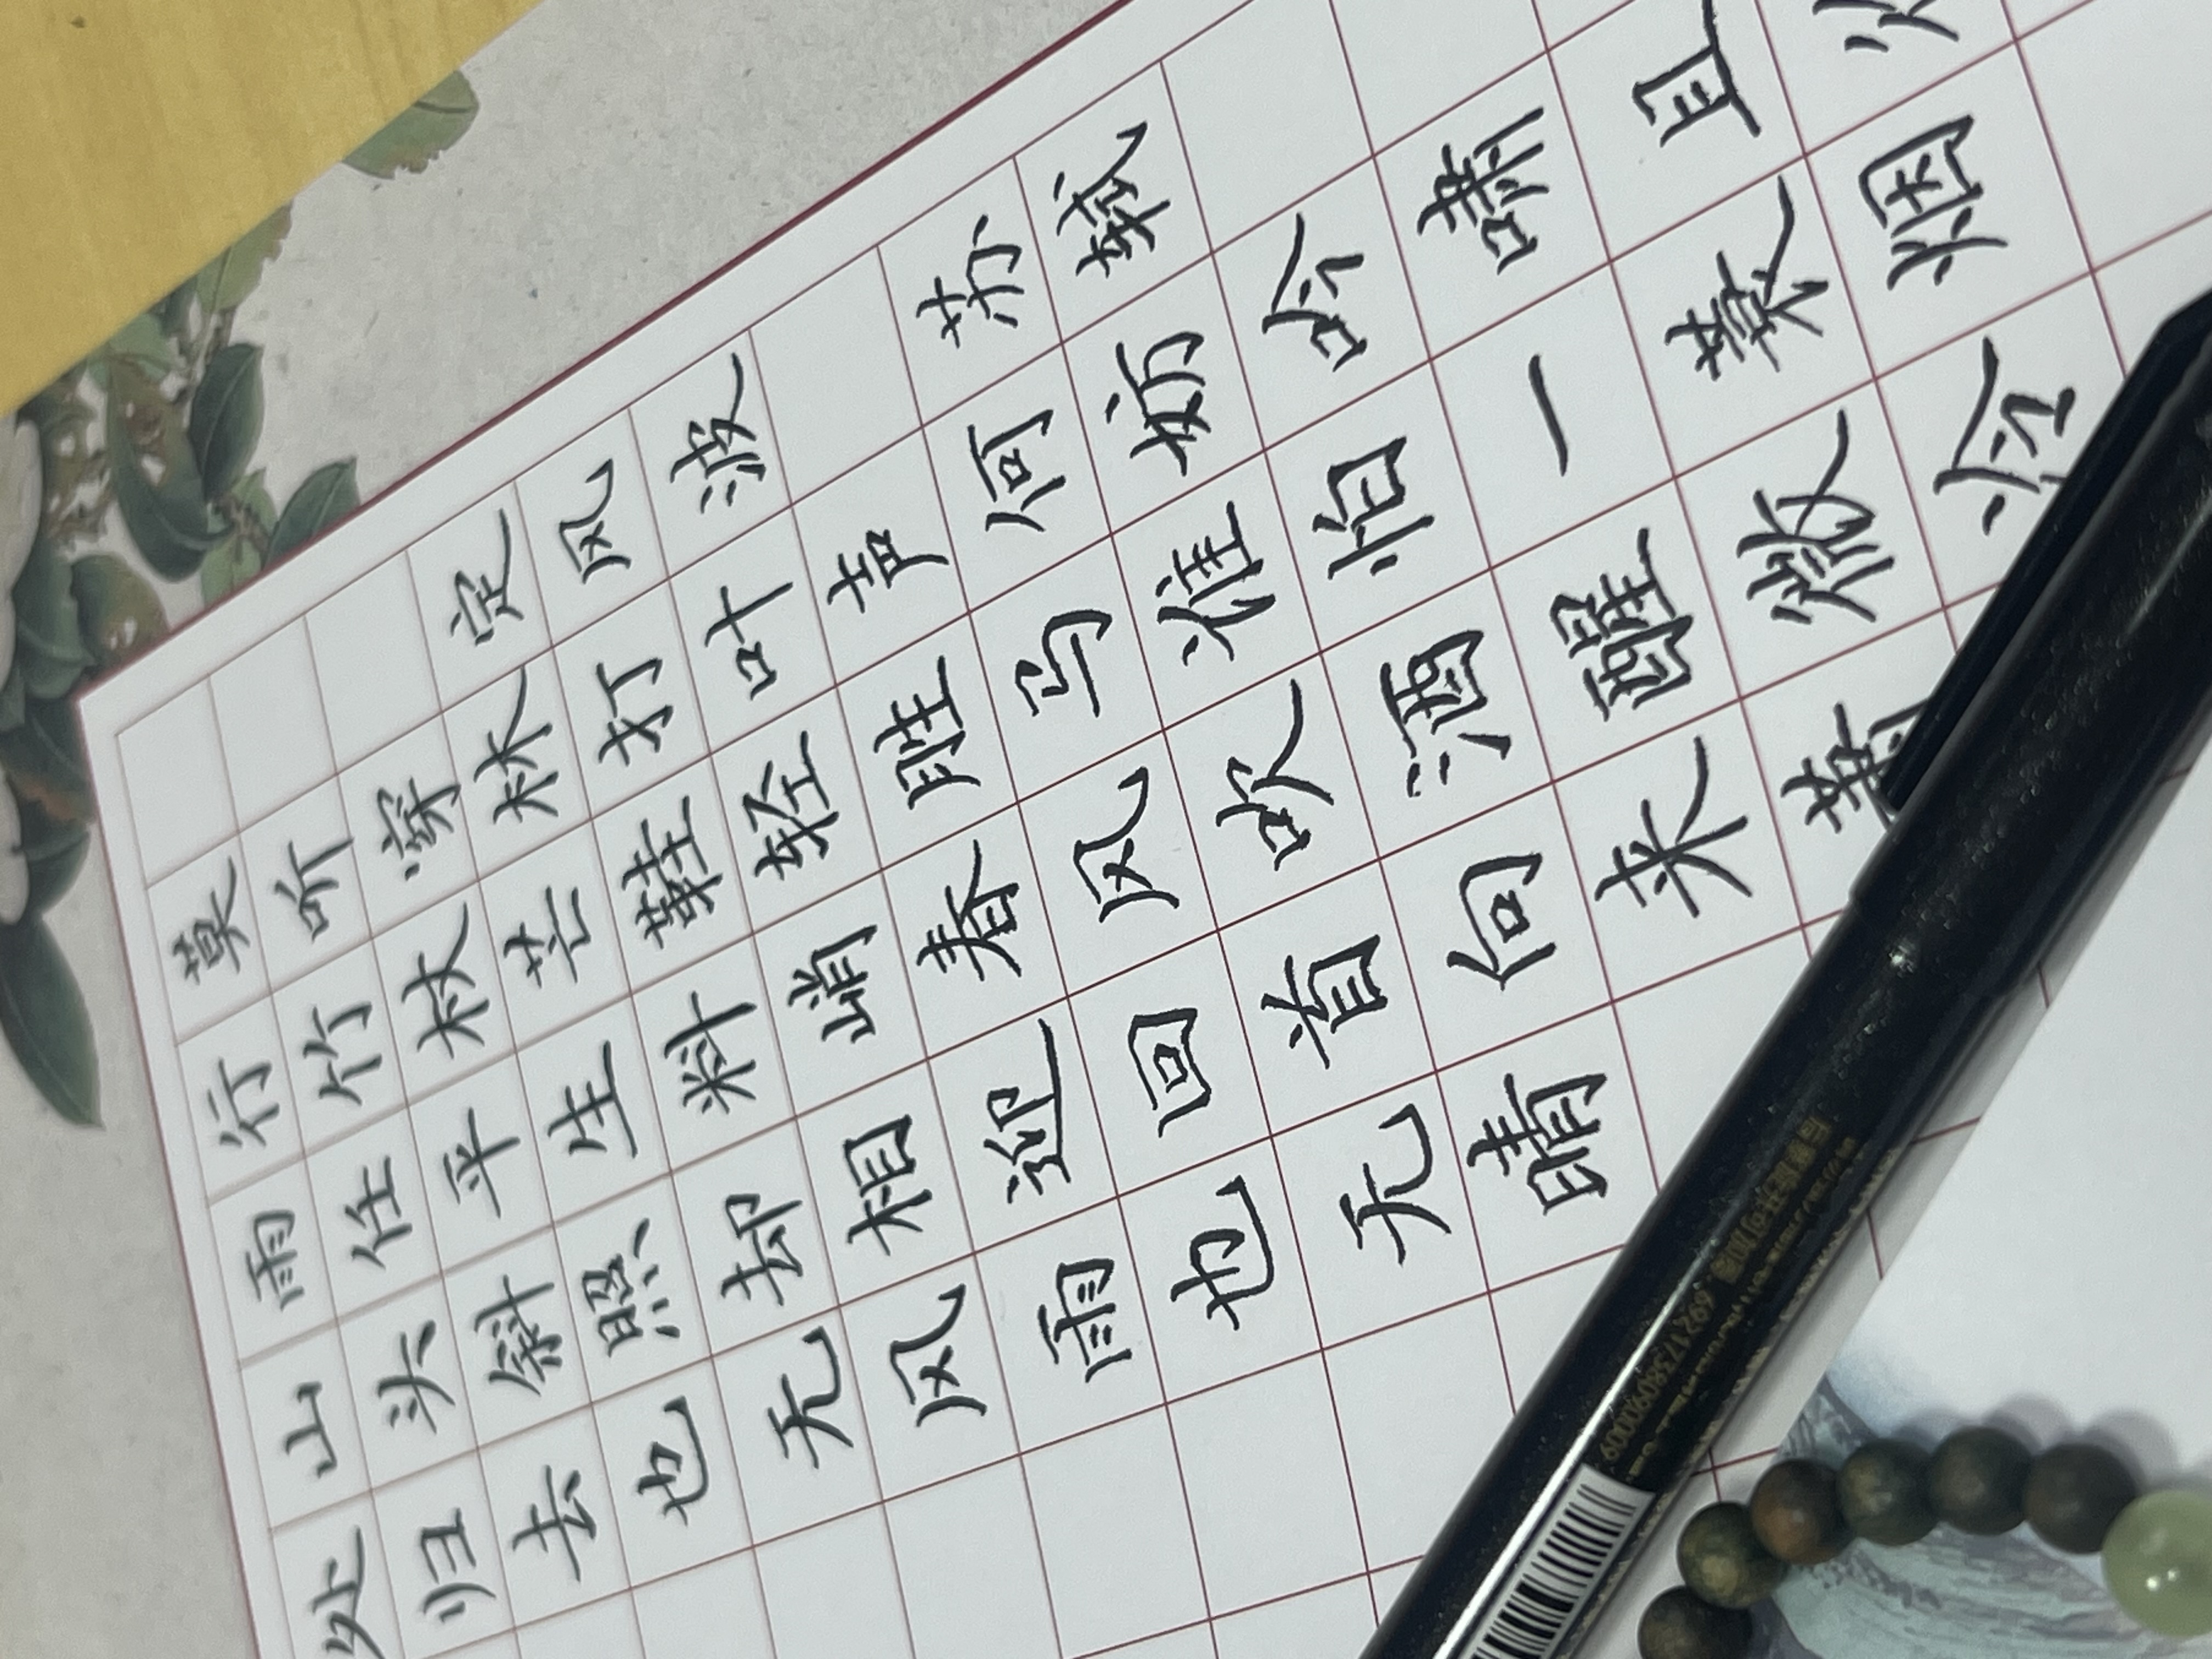 定风波 苏轼
莫听穿林打叶声何妨吟啸且
行竹杖芒鞋轻胜马谁怕一蓑烟
雨任平生料峭春风吹酒醒微冷
山头斜照却相迎回首向来萧
处归去也无风雨也无晴
6921738090009